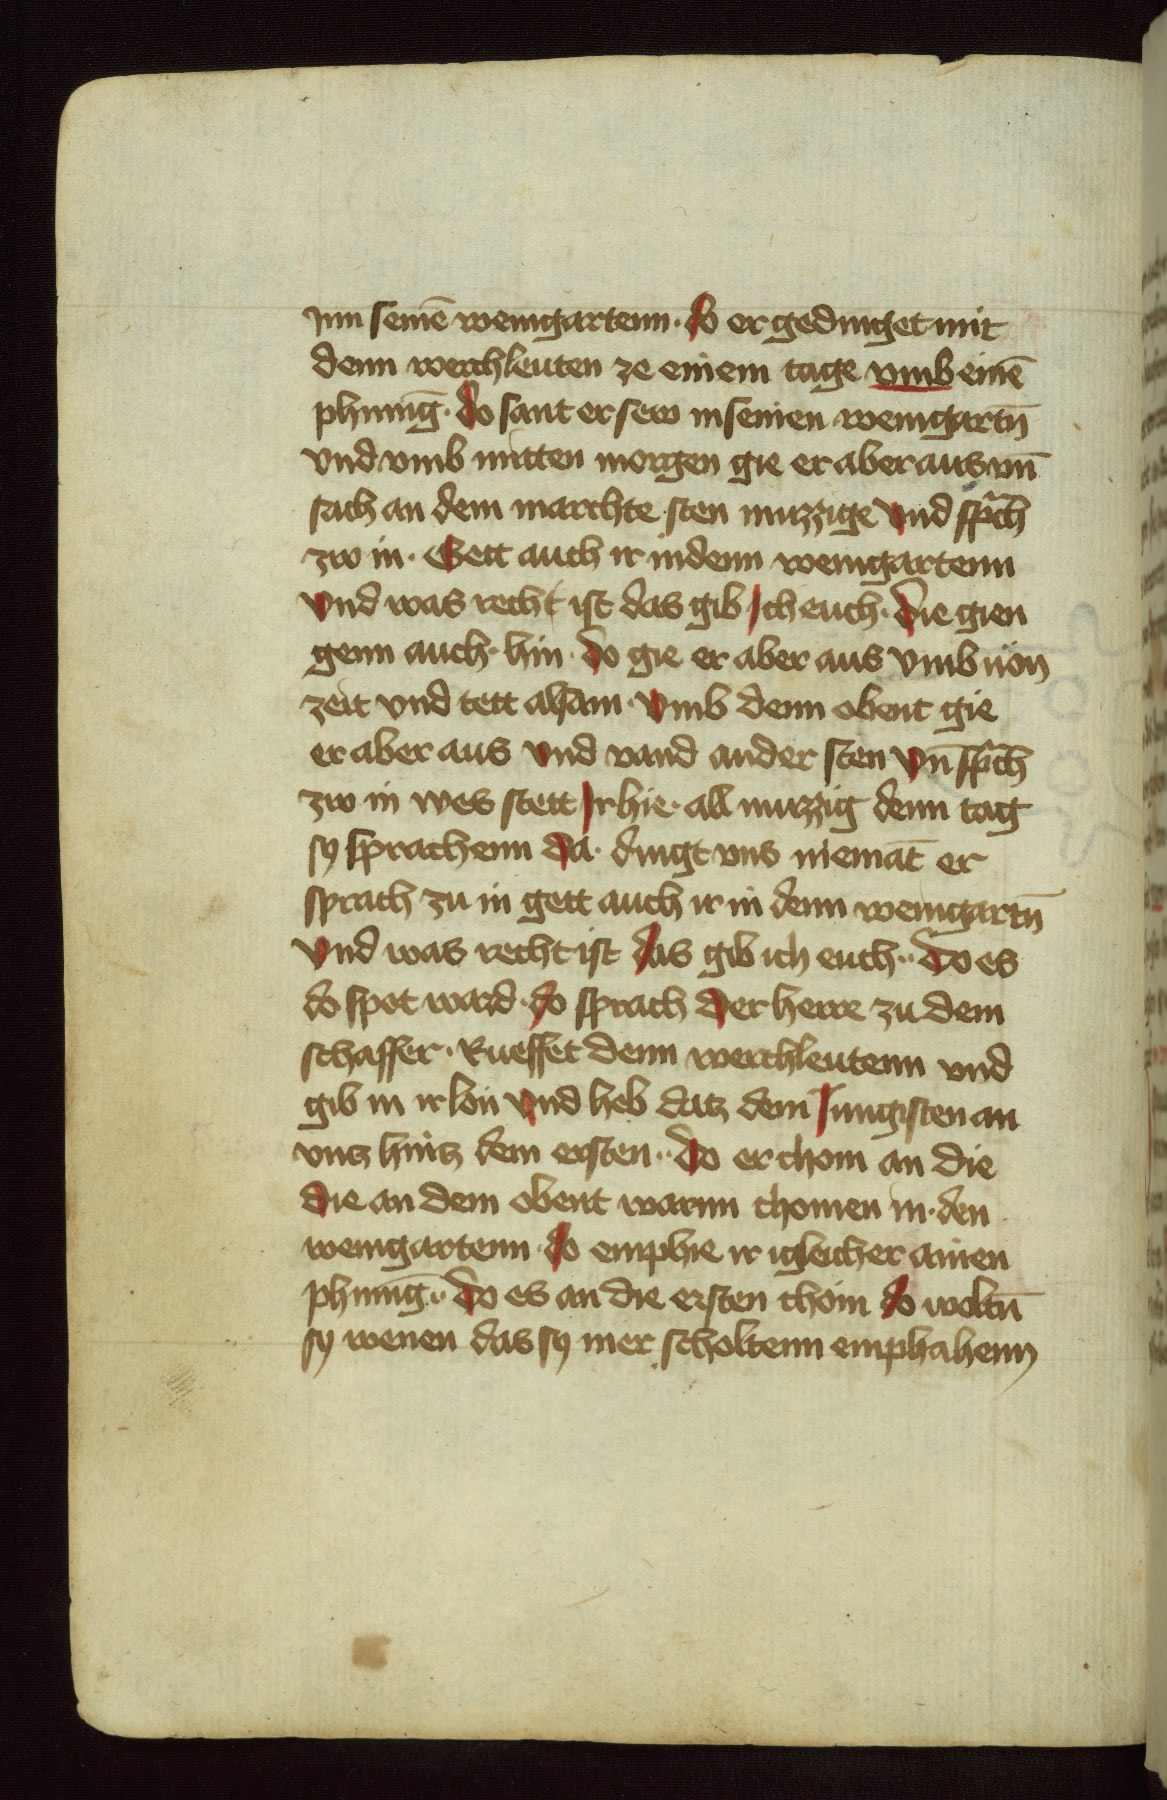 jnn seinē weingartenn · do er gedinget mit
denn werchleuten ze einem tage vmb einē
phnniḡ · do sant er sew in seinen weingartn̄
vnd vmb mitten morgen gie er aber aus vn̄
sach an dem marchte sten muzzige vnd sp̄ch
zw in · Gett auch ir in denn weingartenn
vnd was recht ist das gib jch euch · die gien
genn auch · hin · do gie er aber aus vmb non
zeit vnd tett alsam · vmb denn obent gie
er aber aus vnd vand ander sten vn̄ sp̄ch
zw in wes stett jr hie · all muzzig denn tag
sy sprachenn da · dingt vns niemāt er
sprach zu in gett auch ir in denn weingartn̄
vnd was recht ist das gib ich euch ·· do es
do spot ward · do sprach der herre zu dem
schaffer · Rueffet denn werchleutenn vnd
gib in ir lon vnd heb datz dem jungisten an
vntz hintz dem ersten ·· do er chom an die
die an dem obent warnn chomen in · den
weingartenn · do emphie ir igleicher ainen
phnniḡ ·· do es an die ersten chom do woltn̄
sy wenen das sy mer scholtenn emphahenn